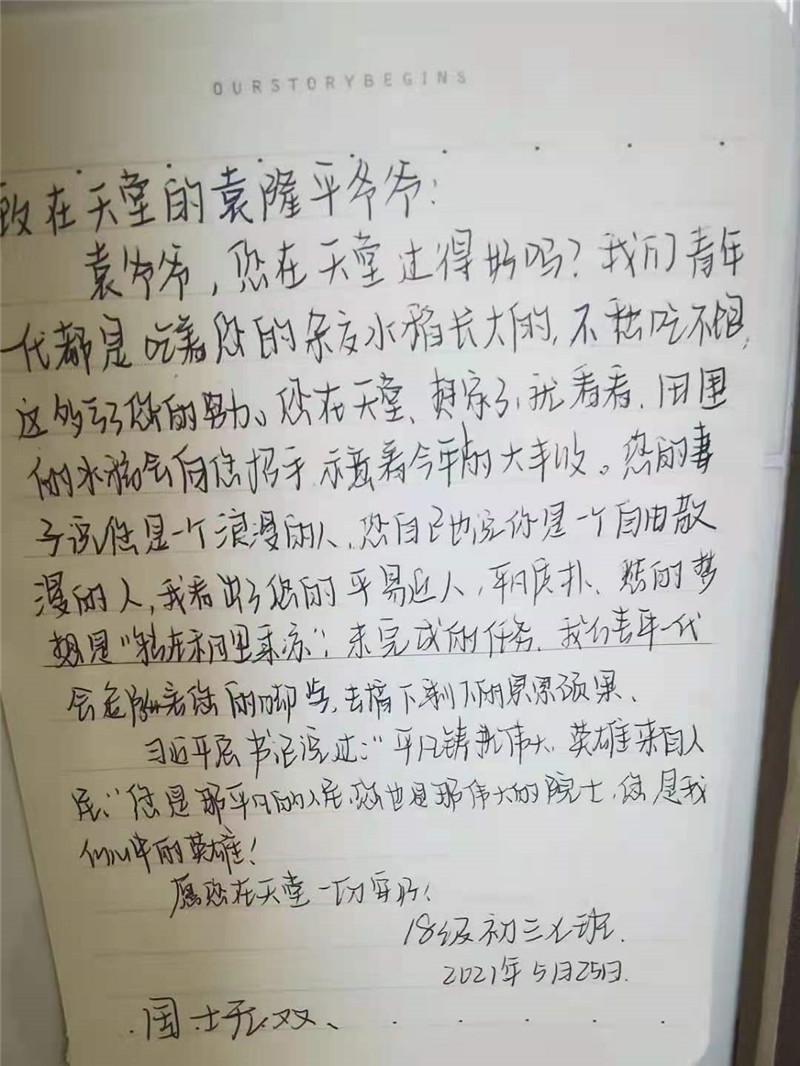 OURSTORYBEGINS
致在天堂的袁隆平爷爷:
袁爷爷,您在天堂过得好吗?我们青年
一代都是吃着您的杂交水稻长大的,不愁吃不饱,
这多亏了您的努力。您在天堂、想家了,就看看,田围
的水稻会向您招手,示意着今年的大丰收。您的妻
子说您是一个浪漫的人、您自己也说你是一个自由散
漫的人,我看出了您的平易近人,平凡质朴、您的梦
想是“禾下乘凉”,未完成的任务,我们青年一代
会沿着您的脚步,去摘下剩下的累累硕果、
习近平总书记说过:“平凡铸就伟大,英雄来自人
民、”您是那平凡的人民,您也是那伟大的院士,您是我
们心中的英雄!
愿您在天堂一切安好!
18级初三七班.
2021年5月25日.
国士无双、